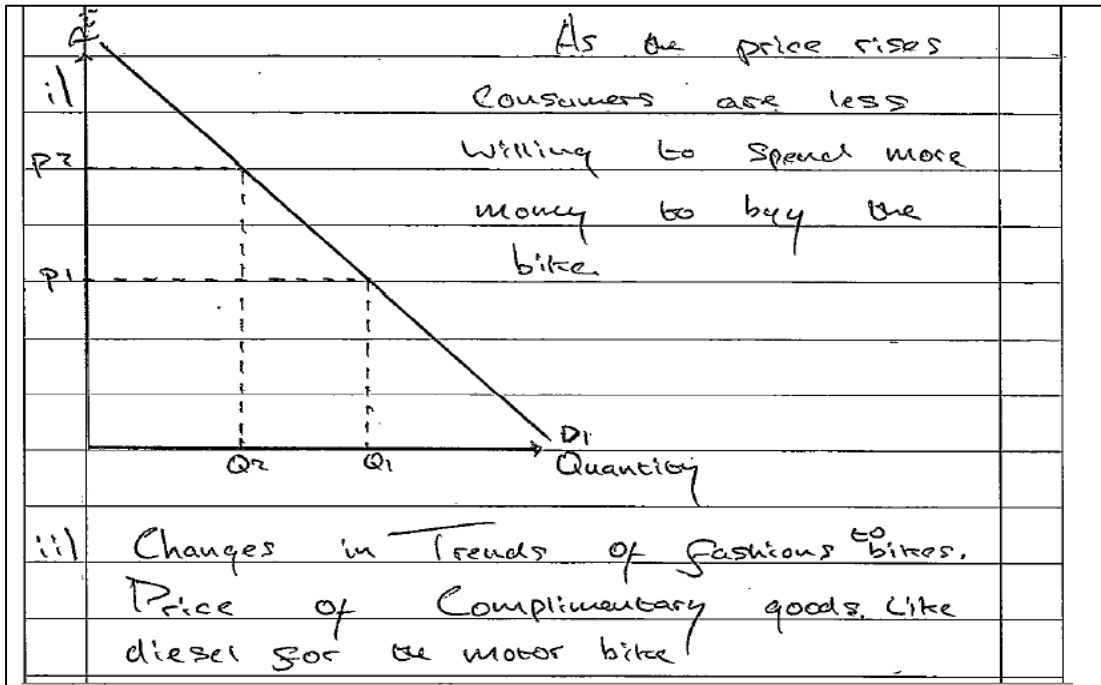 Price
i) As the price rises
Consumers are less
P2 willing to spend more
money to buy the
P1 bike.
D1
Q2 Q1 Quantity
ii) Changes in Trends of fashions to bikes.
Price of Complimentary goods. Like
diesel for the motor bike